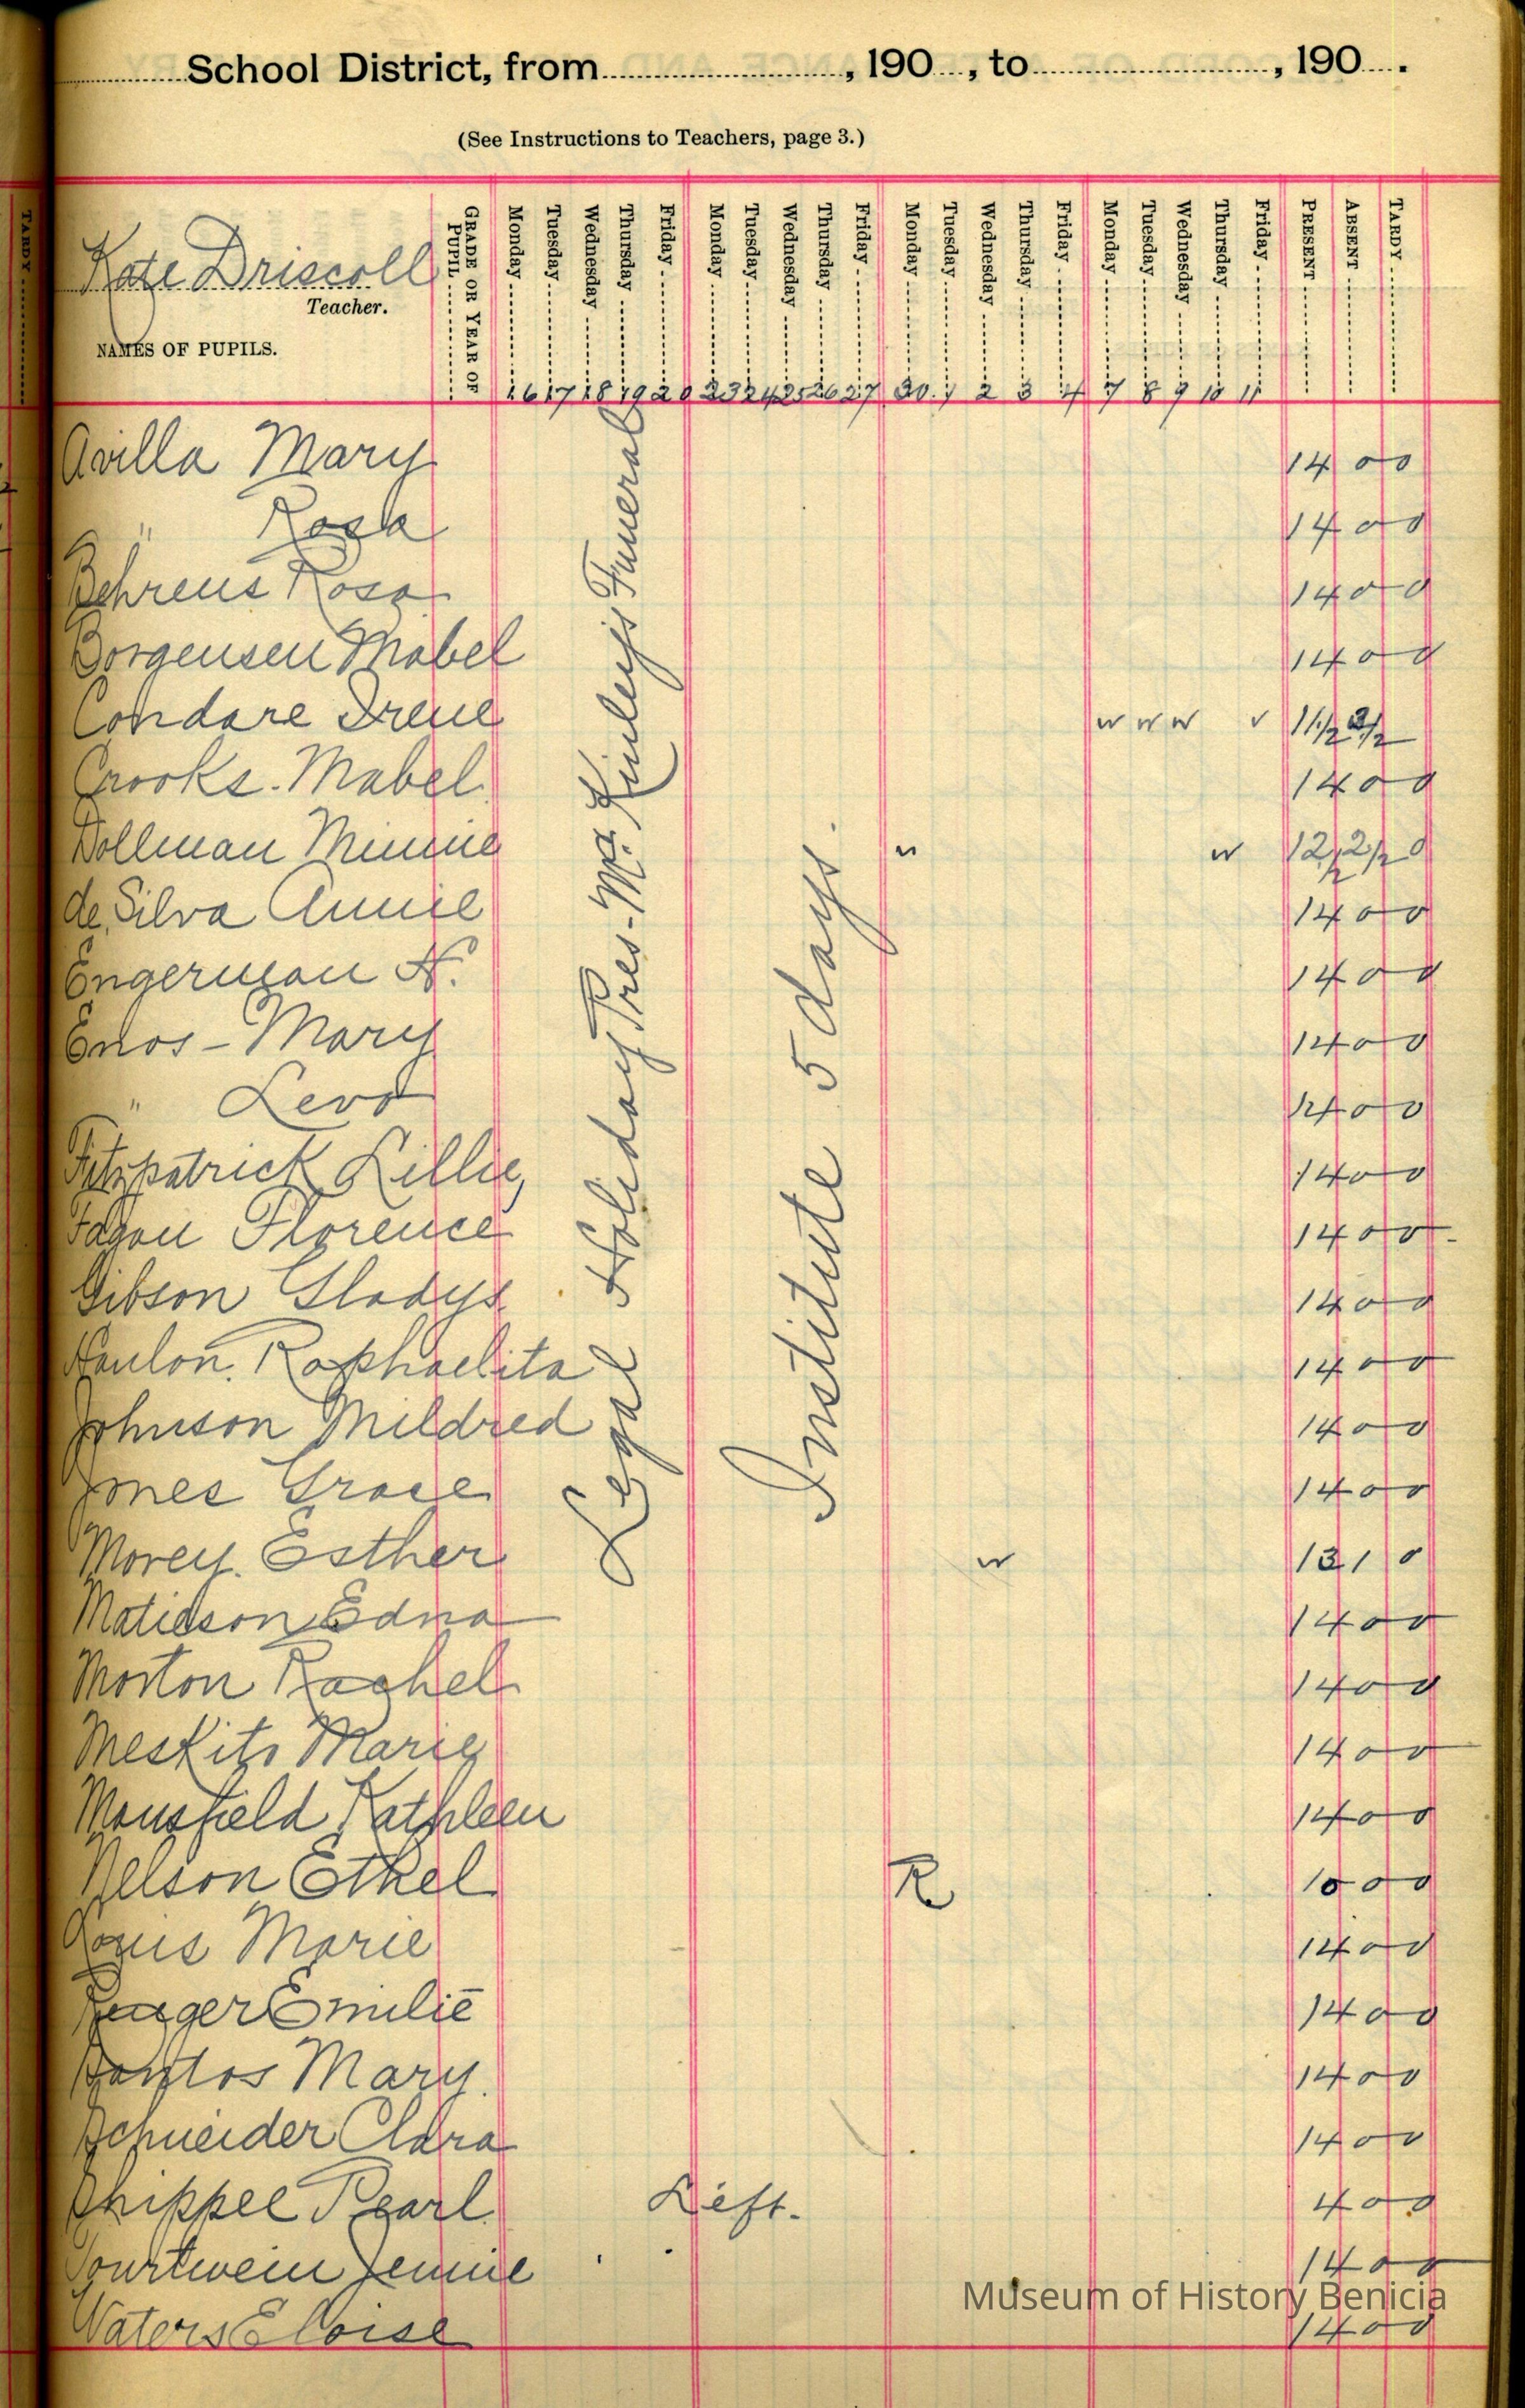 School District, from ............, 190..., to ............, 190....
(See Instructions to Teachers, page 3.)
TARDY
Kate Driscoll
Teacher.
NAMES OF PUPILS.
GRADE OR YEAR OF PUPIL
Monday Tuesday Wednesday Thursday Friday Monday Tuesday Wednesday Thursday Friday Monday Tuesday Wednesday Thursday Friday Monday Tuesday Wednesday Thursday Friday PRESENT ABSENT TARDY
16 17 18 19 20 23 24 25 26 27 30 1 2 3 4 7 8 9 10 11
Legal Holiday Pres- McKinley's Funeral
Institute 5 days.
Avilla Mary 14 0 0
" Rosa 14 0 0
Behrens Rosa 14 0 0
Borgensen Mabel 14 0 0
Condare Irene 11 1/2
Crooks. Mabel 14 0 0
Dollman Minnie 12 1/2 0
de Silva Annie 14 0 0
Engerman N. 14 0 0
Enos - Mary 14 0 0
" 14 0 0
Fitzpatrick Lillie 14 0 0
Fagan Florence 14 0 0
Gibson Gladys 14 0 0
Hanlon. Raphaelita 14 0 0
Johnson Mildred 14 0 0
Jones Grace 14 0 0
Morey. Esther 13 1 0
Edna 14 0 0
Morton Rachel 14 0 0
Meskito Marie 14 0 0
Mansfield Kathleen 14 0 0
Nelson Ethel R 10 0 0
Marie 14 0 0
Emilie 14 0 0
Santos Mary. 14 0 0
Schneider Clara 14 0 0
Shippee Pearl Left. 4 0 0
Jennie 14 0 0
Waters Eloise 14 0 0
Museum of History Benicia